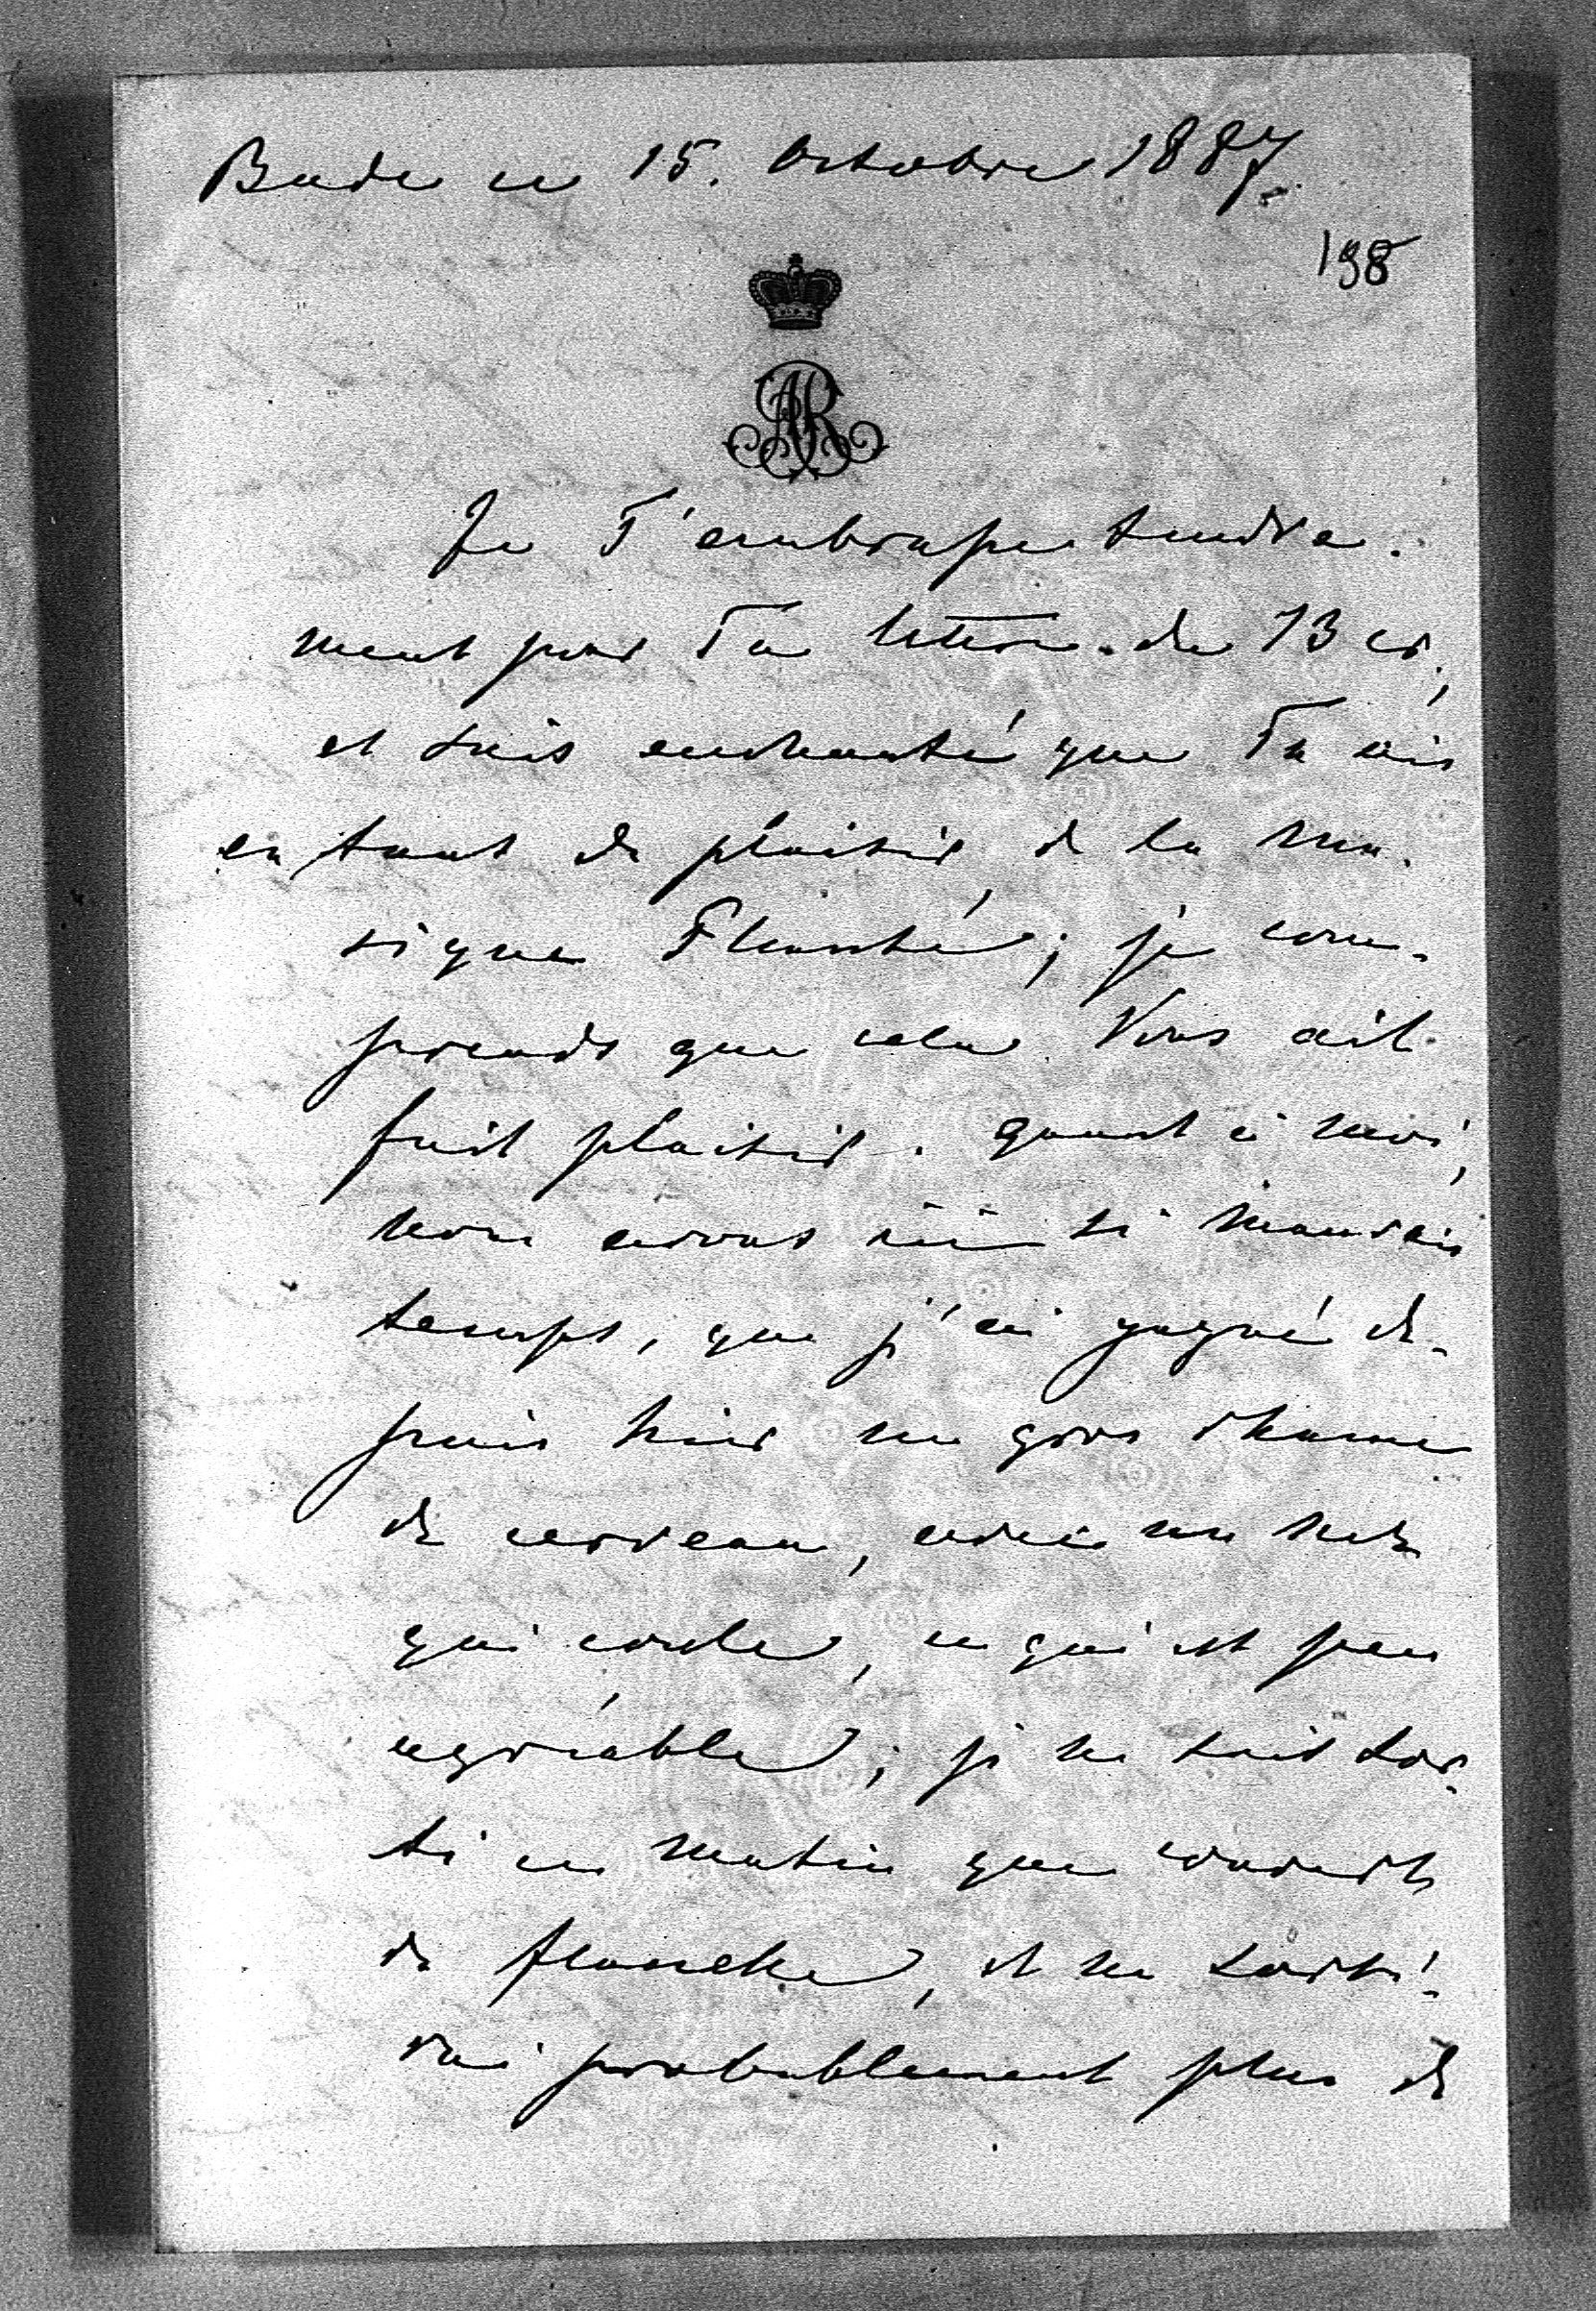 Bade ce 15. Octobre 1887.
198
AR
Je T'embrasse tendre-
ment pour Ta lettre de 13 cr.,
et suis enchanté que Tu ais
eu tant de plaisir de la mu-
sique ; je com-
prends que cela Vous ait
fait plaisir. quant à moi,
nous avons ici si mauvais
temps, que j'ai gagné de-
puis hier un gros rhume
de cerveau, avec un nez
qui coule, ce qui est peu
agréable; je ne suis sor-
ti ce matin que couvert
de flanelle, et ne sorti-
rai probablement plus de